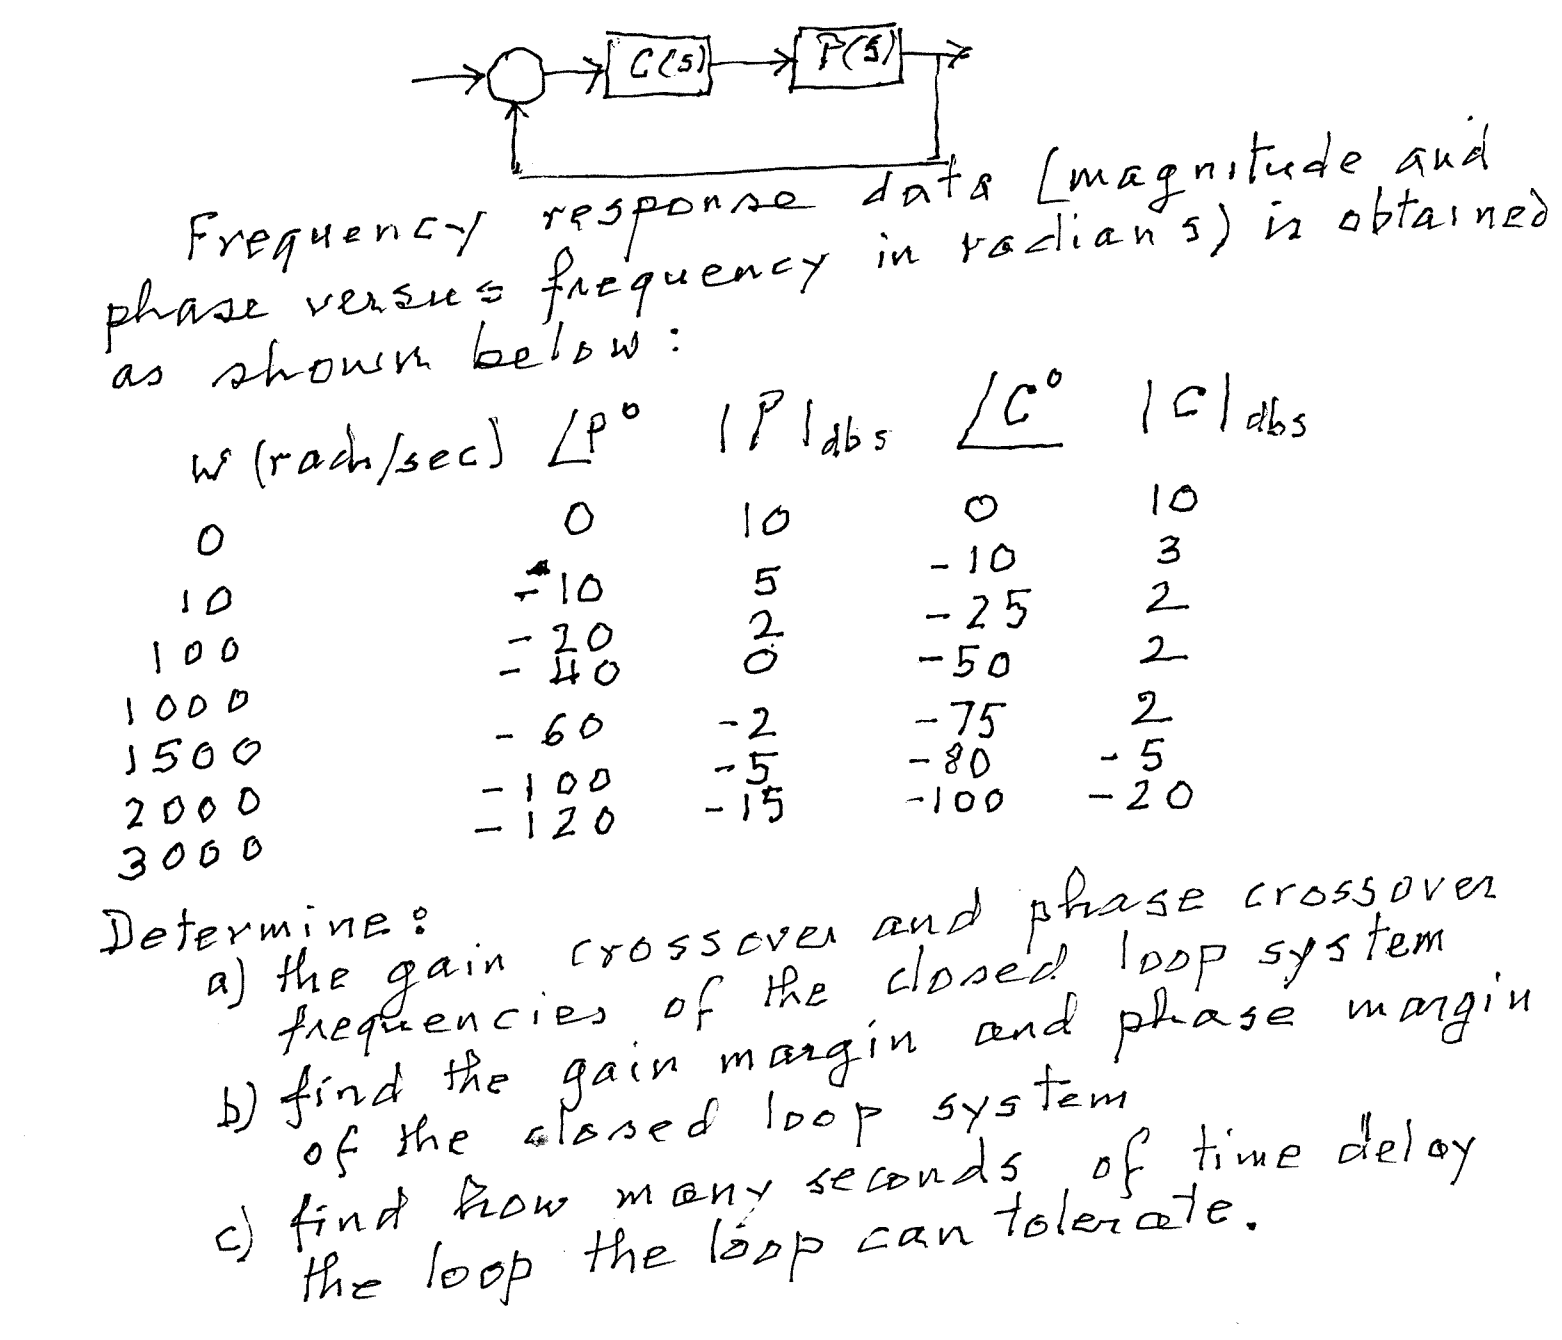 C(s) P(s)
Frequency response data (magnitude and
phase versus frequency in radians) is obtained
as shown below:
w (rads/sec) ∠P° |P|dbs ∠C° |C|dbs
0 0 10 0 10
10 -10 5 -10 3
100 -20 2 -25 2
1000 -40 0 -50 2
1500 -60 -2 -75 2
2000 -100 -5 -80 -5
3000 -120 -15 -100 -20
Determine:
a) the gain crossover and phase crossover
frequencies of the closed loop system
b) find the gain margin and phase margin
of the closed loop system
c) find how many seconds of time delay
the loop the loop can tolerate.